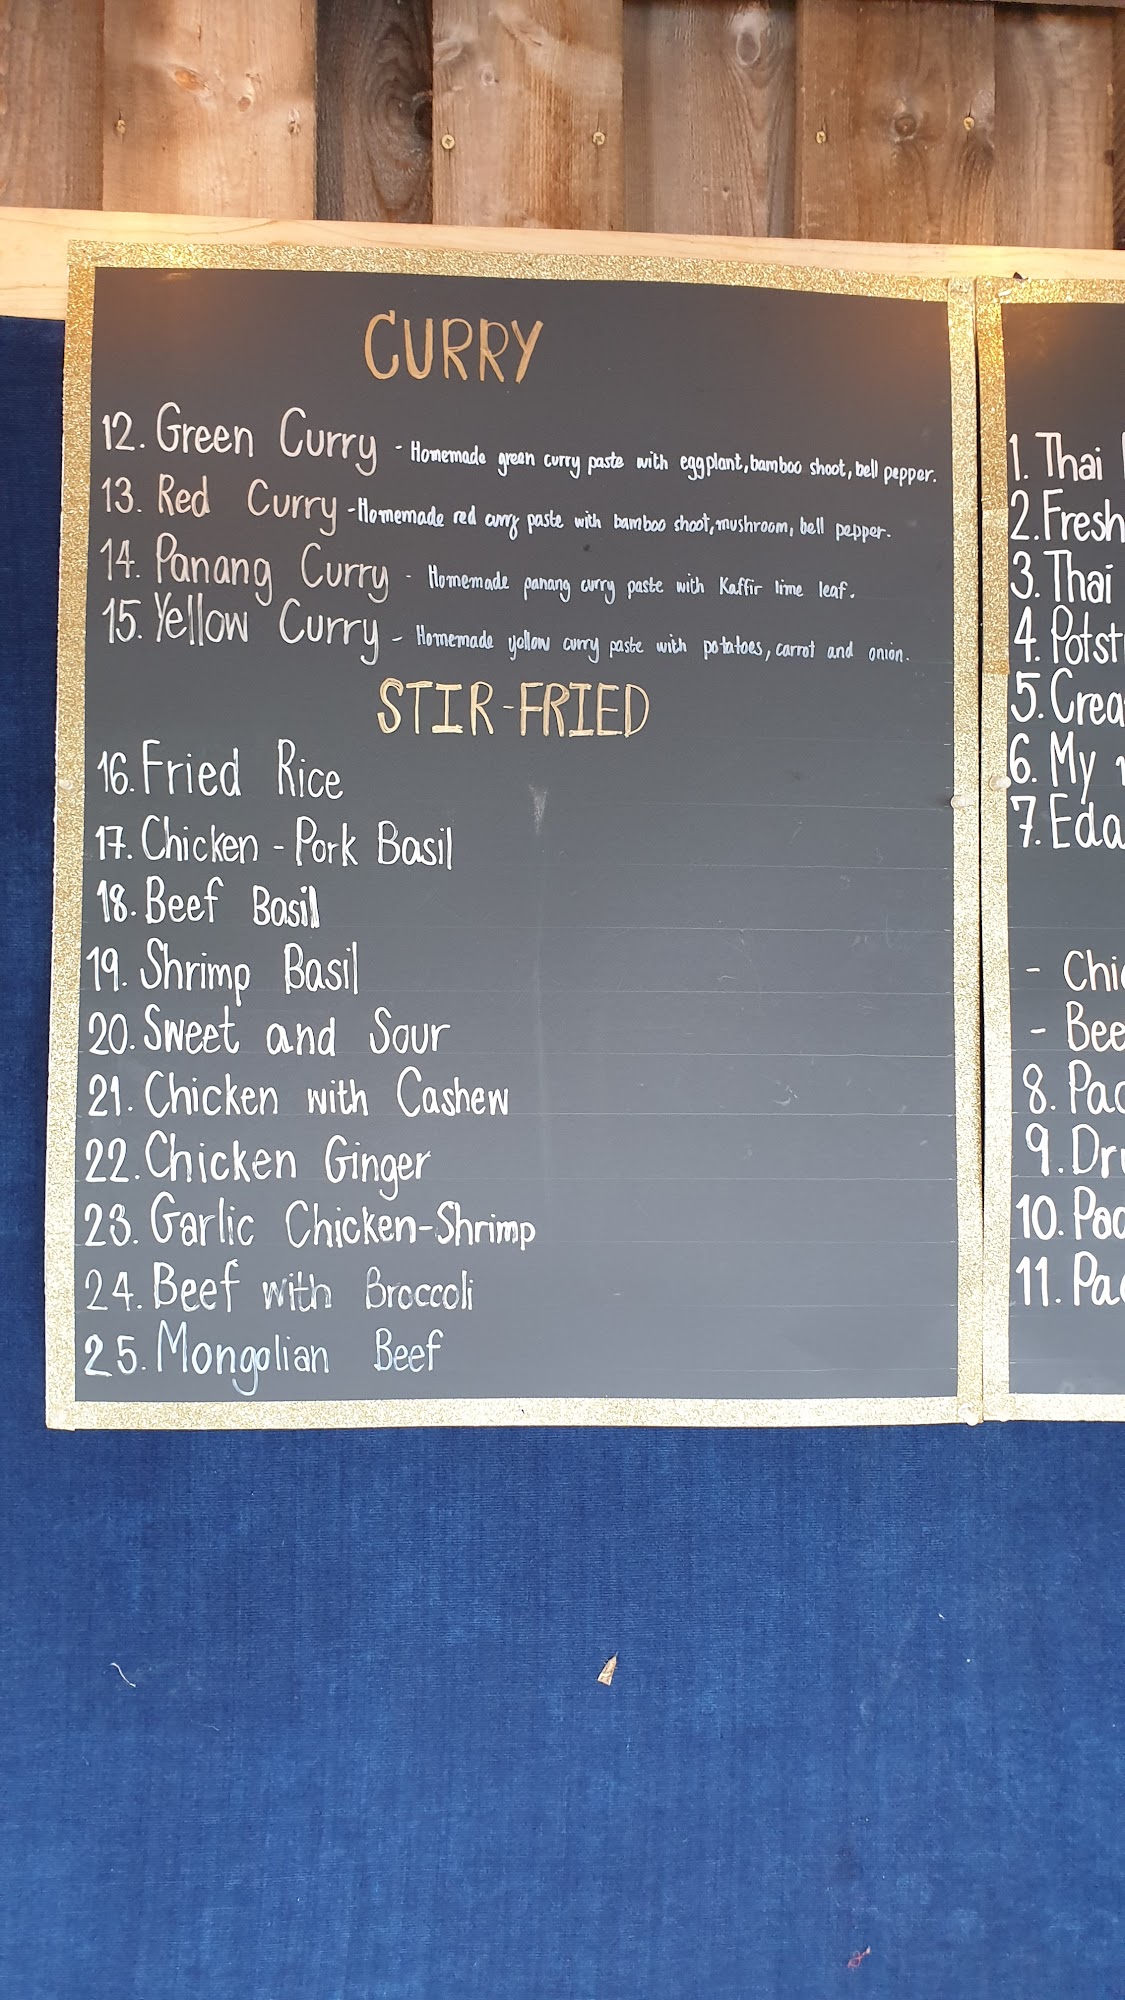 CURRY
12. Green Curry - Homemade green curry paste with eggplant, bamboo shoot, bell pepper.
13. Red Curry - Homemade red curry paste with bamboo shoot, mushroom, bell pepper.
14. Panang Curry - Homemade panang curry paste with Kaffir lime leaf.
15. Yellow Curry - Homemade yellow curry paste with potatoes, carrot and onion.
STIR-FRIED
16. Fried Rice
17. Chicken - Pork Basil
18. Beef Basil
19. Shrimp Basil
20. Sweet and Sour
21. Chicken with Cashew
22. Chicken Ginger
23. Garlic Chicken-Shrimp
24. Beef with Broccoli
25. Mongolian Beef
1. Thai
2. Fresh
3. Thai
4.
5.
6. My
7.
8.
9.
10.
11.